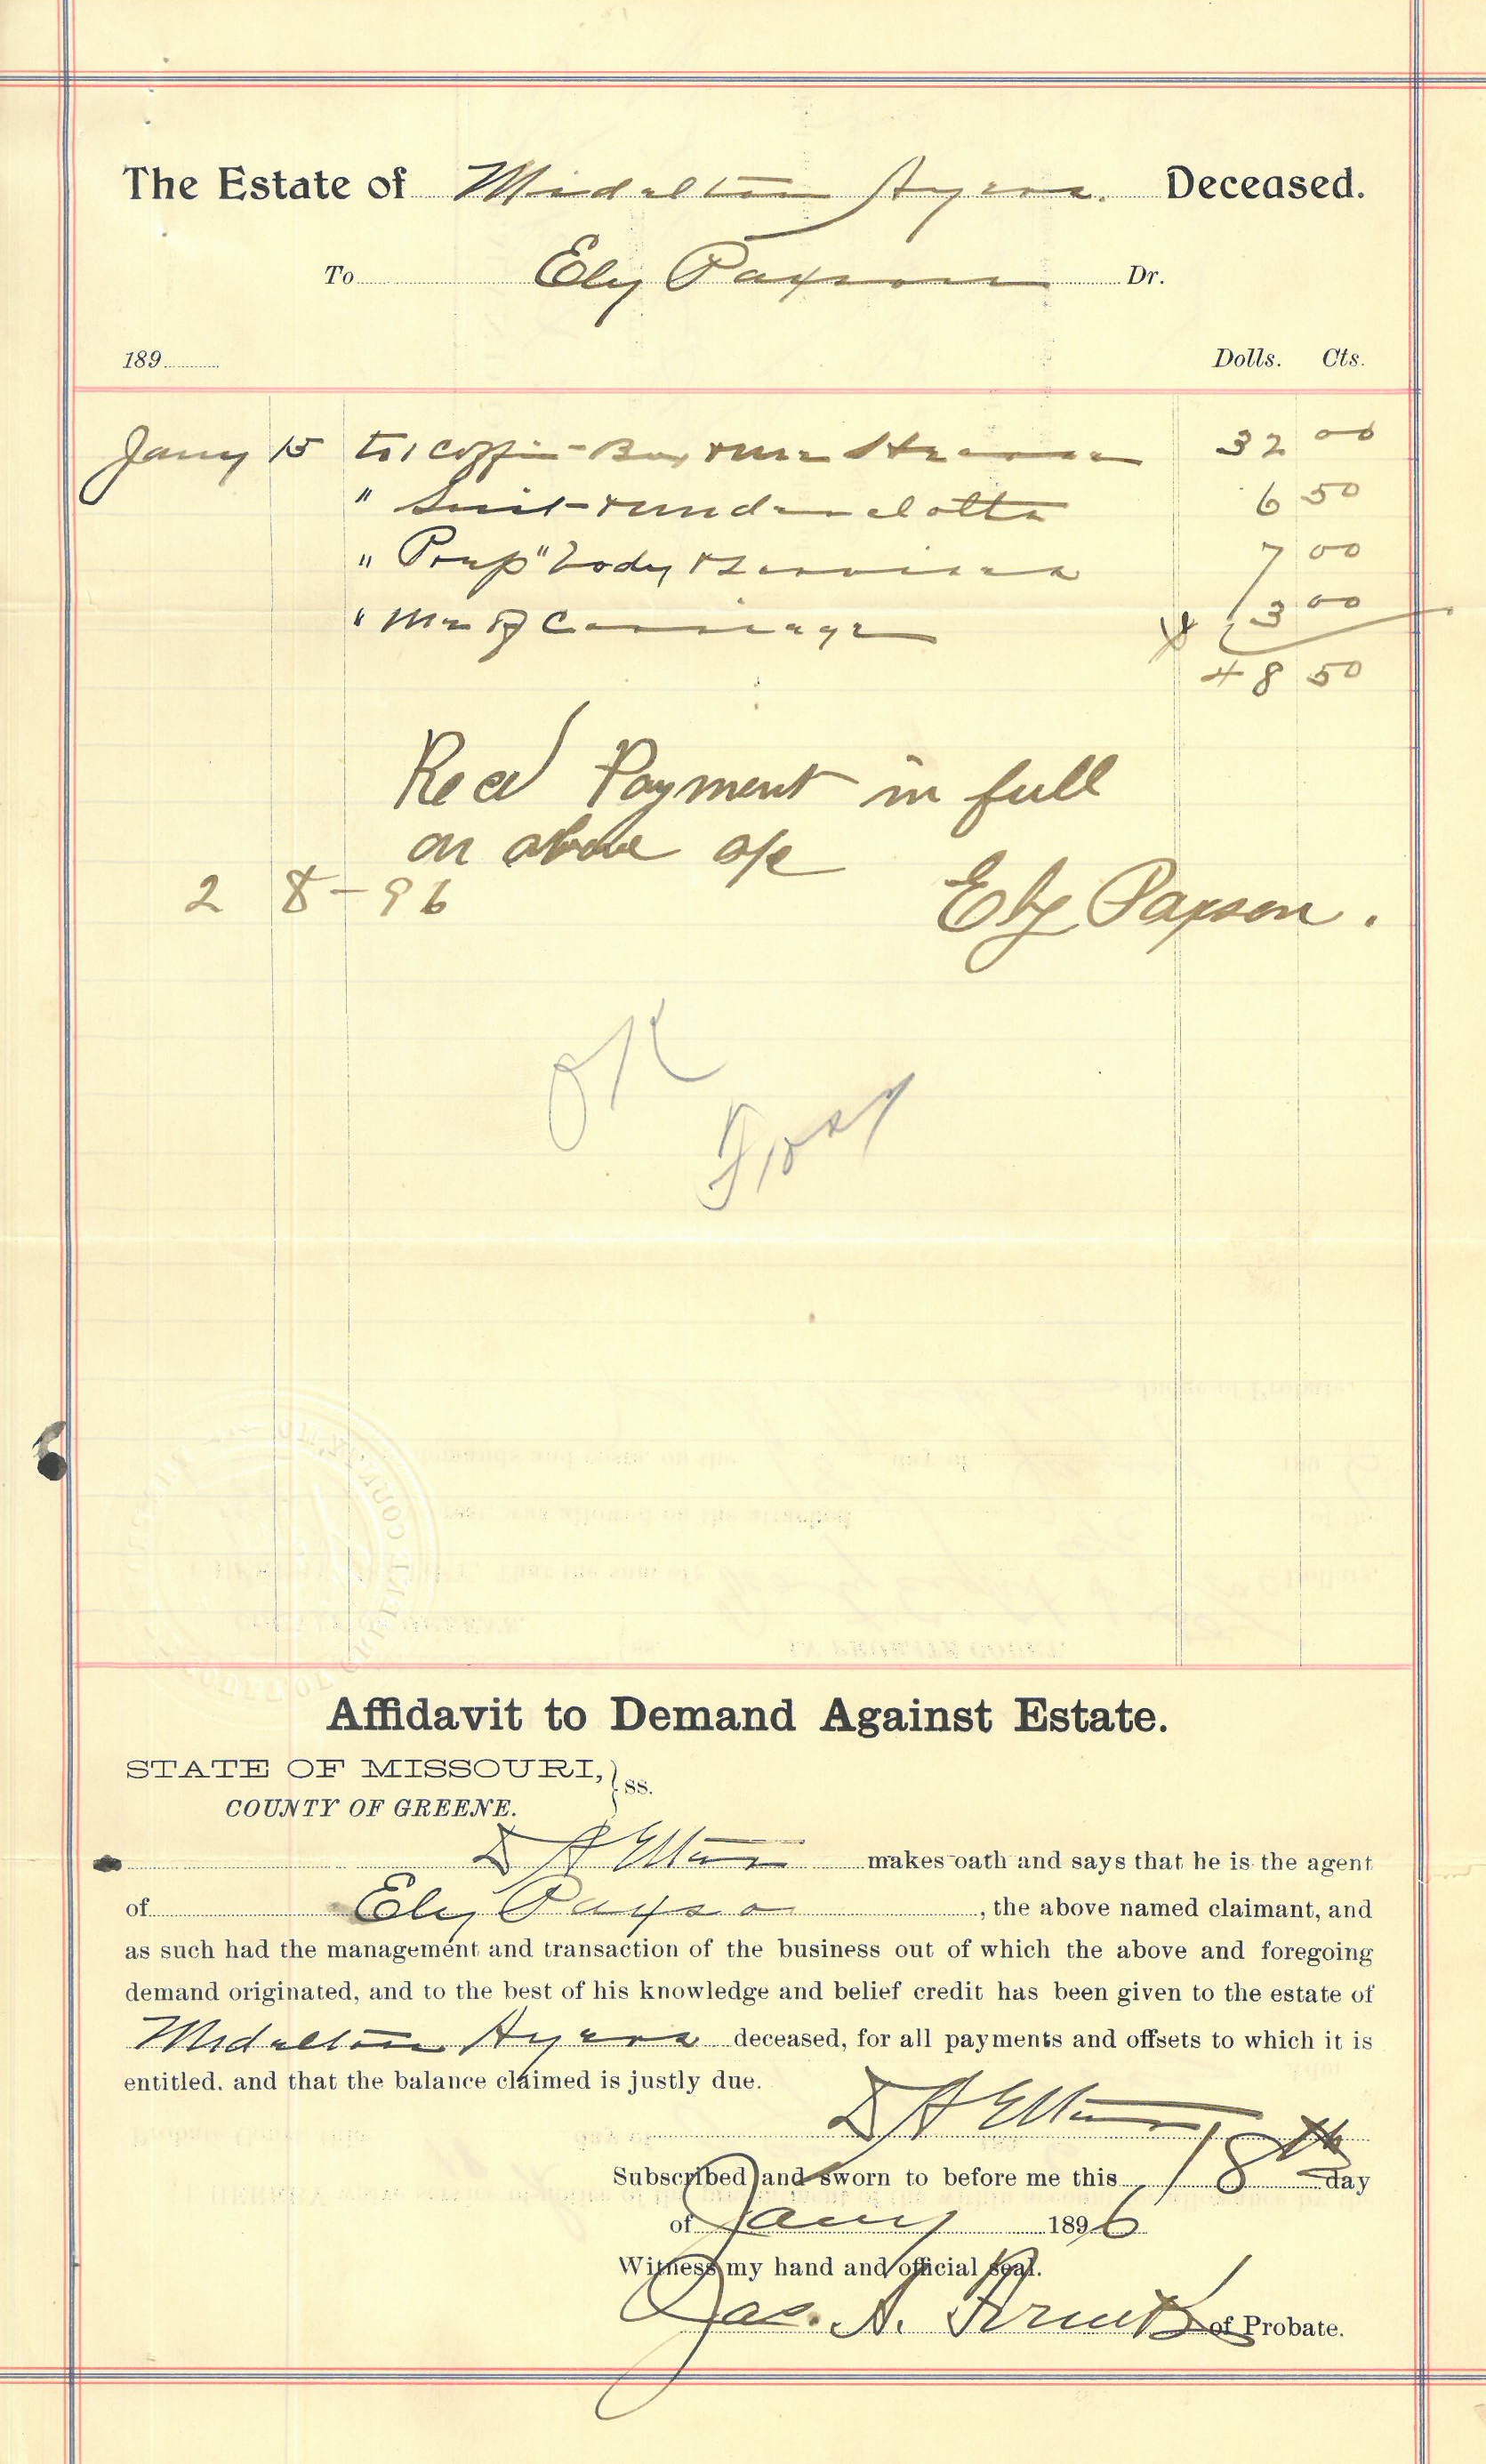 The Estate of Midelton Ayers. Deceased.
To Ely Paxson Dr.
189 Dolls. Cts.
Jany 15 to 1 Coffin Box & use Hearse 32 00
" Suit & under clothe 6 50
" Prep" body & Services 7 00
" use of Carriage 3 00
$ 48 50
Recd Payment in full
on above a/c
2 8-96 Ely Paxson.
OK
Affidavit to Demand Against Estate.
STATE OF MISSOURI, } ss.
COUNTY OF GREENE.
D A makes oath and says that he is the agent
of Ely Paxson, the above named claimant, and
as such had the management and transaction of the business out of which the above and foregoing
demand originated, and to the best of his knowledge and belief credit has been given to the estate of
Midelton Ayers deceased, for all payments and offsets to which it is
entitled. and that the balance claimed is justly due.
D A
Subscribed and sworn to before me this 18th day
of Jany 1896
Witness my hand and official seal.
Jas. A. of Probate.